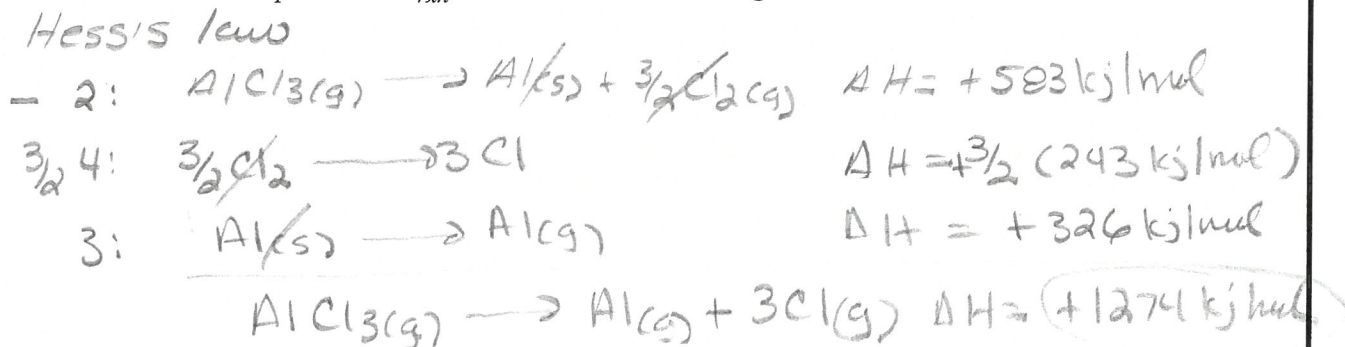 Hess's law
- 2: AlCl3(g) → Al(s) + 3/2 Cl2(g) ΔH= +583 kj/mol
3/2 4: 3/2 Cl2 → 3 Cl ΔH =+3/2 (243 kj/mol)
3: Al(s) → Al(g) ΔH = +326 kj/mol
AlCl3(g) → Al(g) + 3Cl(g) ΔH= +1274 kj/mol